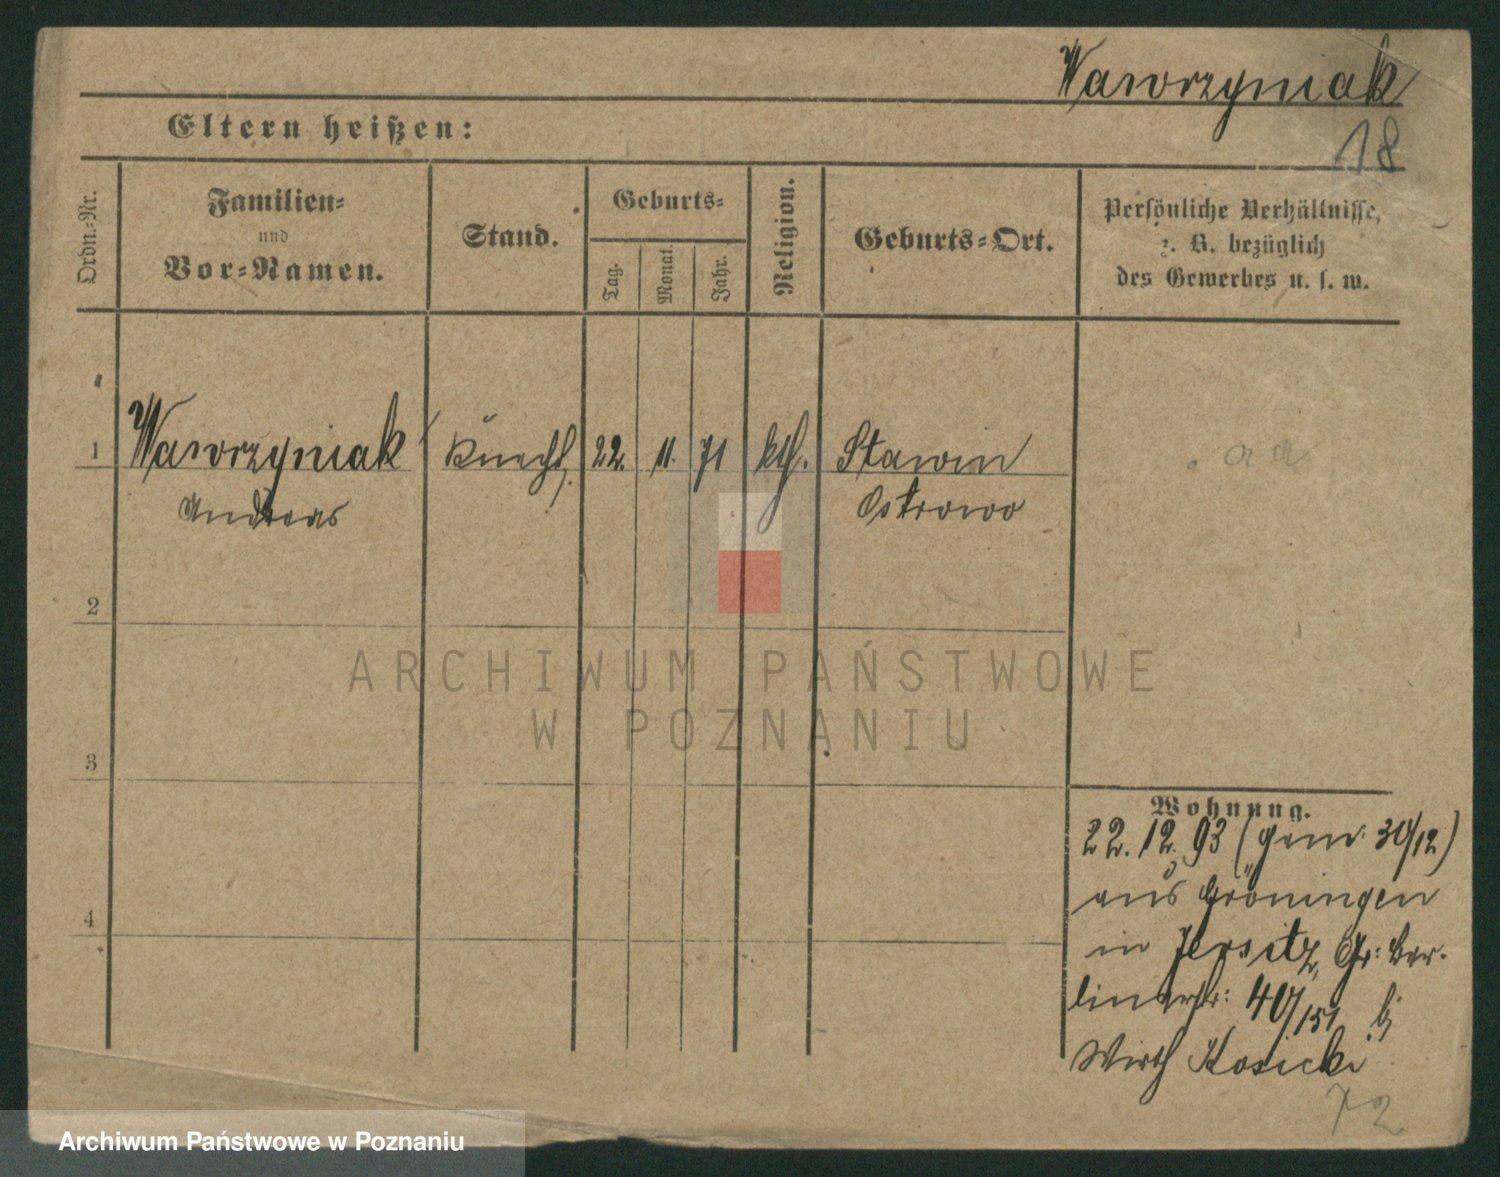 Wawrzyniak
18
Eltern heißen:
Ordn.-Nr.
Familien-
und
Vor-Namen.
Stand.
Geburts-
Tag.
Monat.
Jahr.
Religion.
Geburts-Ort.
Persönliche Verhältnisse,
z. B. bezüglich
des Gewerbes u. s. w.
1 Wawrzyniak Knecht 22. 11. 71 kth. Stawin
Andreas Ostrowo
2
3
4
ARCHIWUM PAŃSTWOWE
W POZNANIU
Wohnung.
22. 12. 93 (gem: 30/12)
aus Gröningen
in Jersitz, Gr: Ber-
linerstr: 40/151 bj
Wirth Kosicki
72
Archiwum Państwowe w Poznaniu